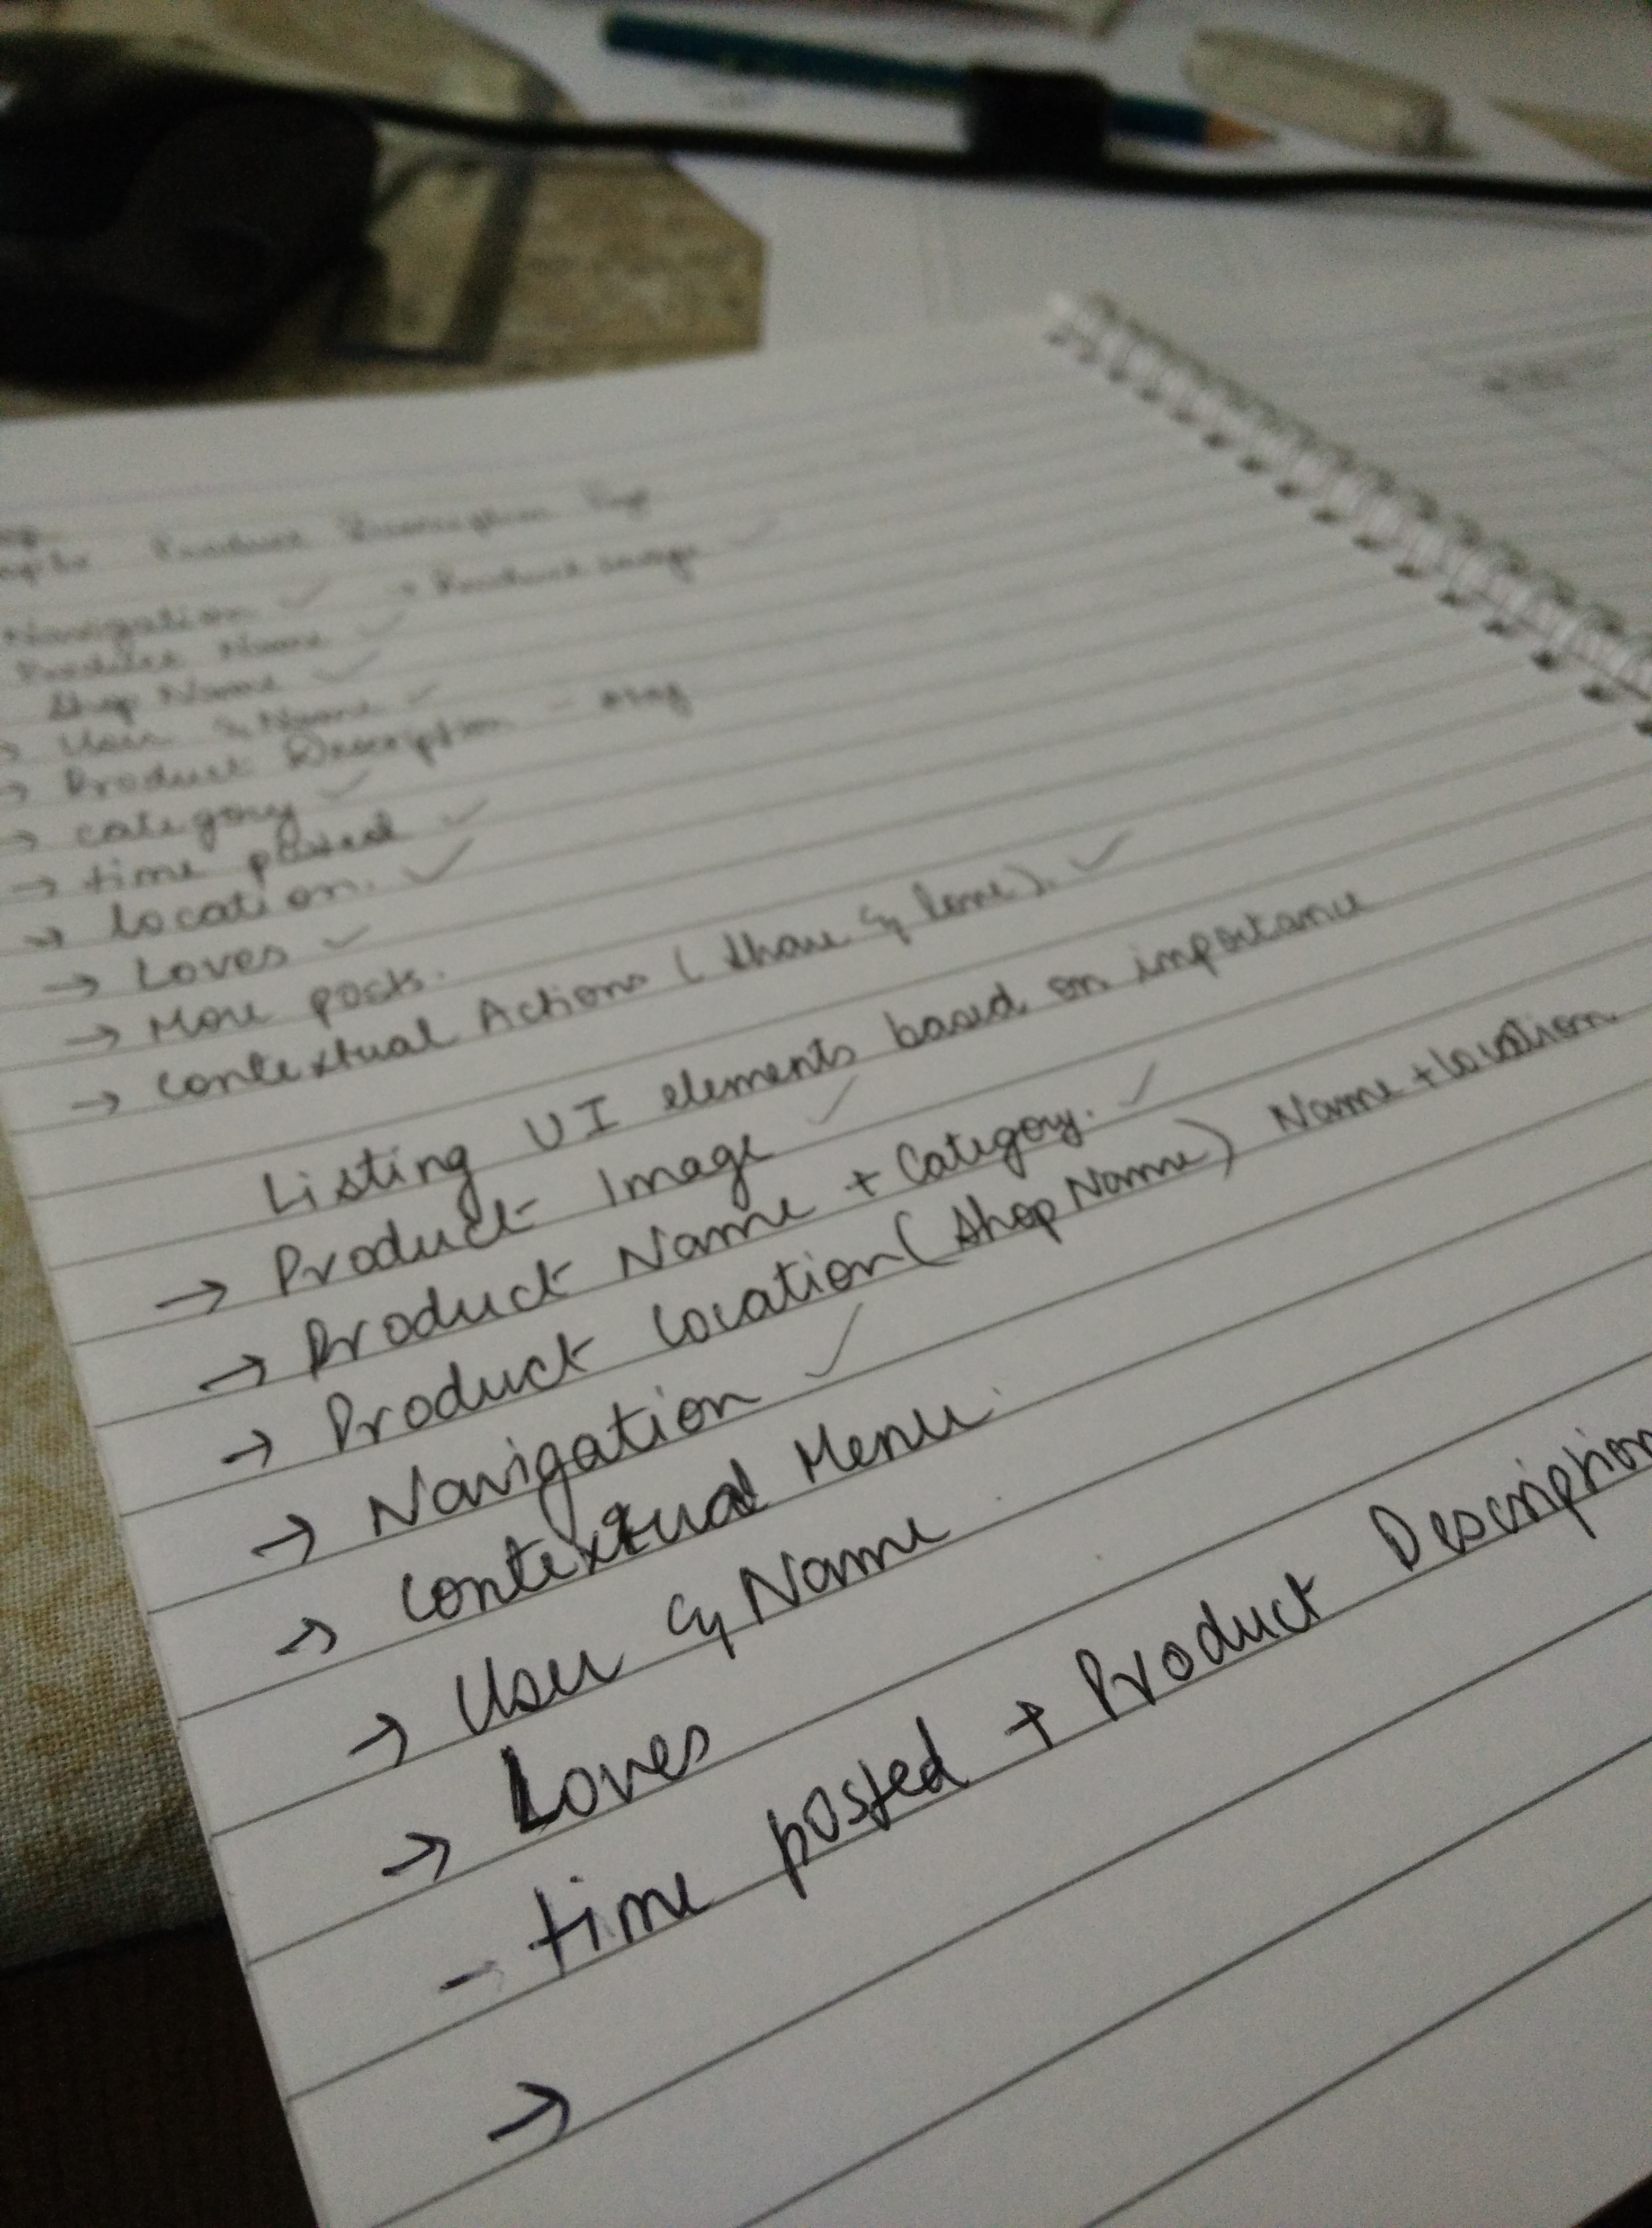 Product Description Page
Navigation ✓ → Product image ✓
Product Name ✓
Shop Name ✓
→ User & Name ✓
→ Product Description -
→ category ✓
→ time posted ✓
→ location. ✓
→ Loves ✓
→ More posts.
→ contextual Actions (share & love). ✓
Listing UI elements based on importance
→ Product Image ✓
→ Product Name + Category. ✓
→ Product location (shop Name) Name + location
→ Navigation ✓
→ contextual Menu
→ User & Name
→ Loves
- time posted + Product Description
→